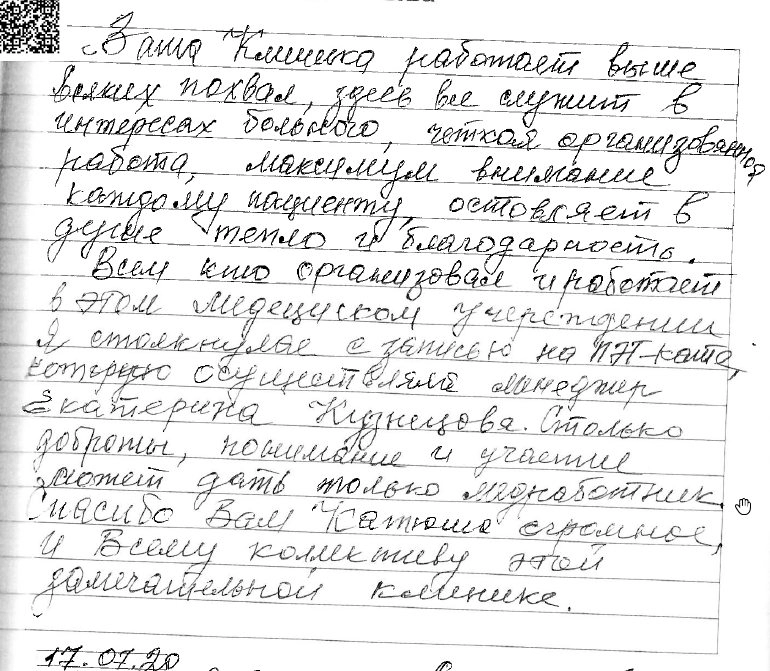 Ваша Клиника работает выше
всяких похвал, здесь все служит в
интересах больного, четкая организованная
работа, максимум внимание
каждому пациенту, оставляет в
душе тепло и благодарность.
Всем кто организовал и работает
в этом медециском учереждении
Я столкнулае с записью на ПЭТ-ката,
которую осуществляла менеджер
Екатерина Кузнецова. Столько
доброты, понимание и участие
может дать только медработник.
Спасибо Вам Катюша огромное,
и Всему коллективу этой
замечательной клинике.
17.07.20